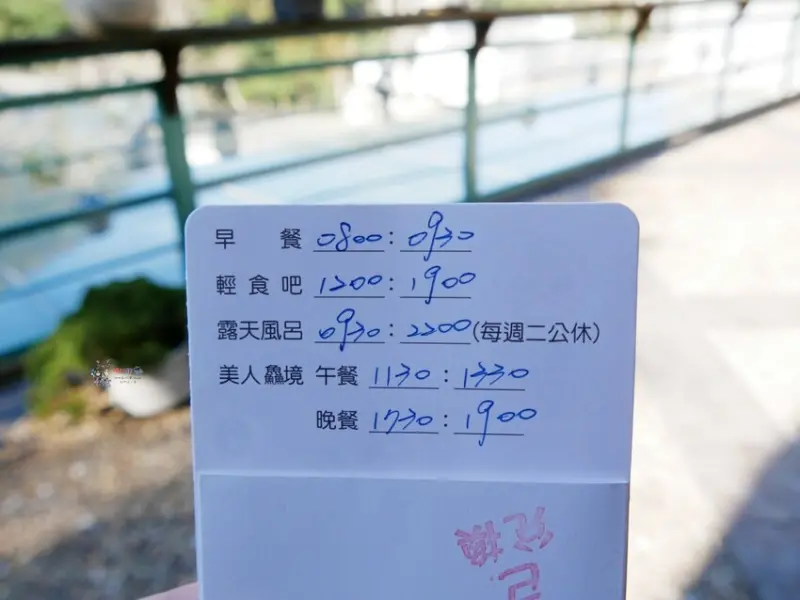 早餐 0800:0930
輕食吧 1200:1900
露天風呂 0930:2200(每週二公休)
美人鱻境 午餐 1130:1330
晚餐 1730:1900
已兌換